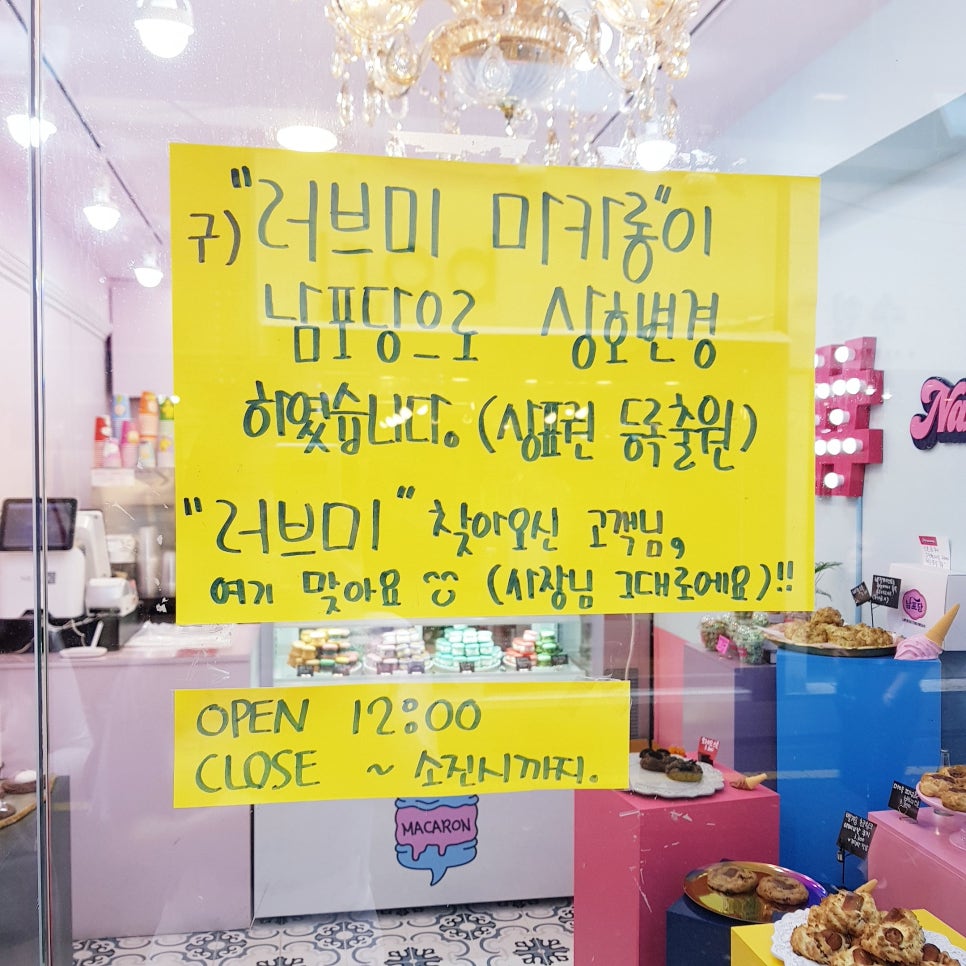 구) "러브미 마카롱"이
남포당으로 상호변경
하였습니다. (상표권 등록출원)
"러브미" 찾아오신 고객님,
여기 맞아요 (사장님 그대로에요)!!
OPEN 12:00
CLOSE ~ 소진시까지.
MACARON
Na
남포당